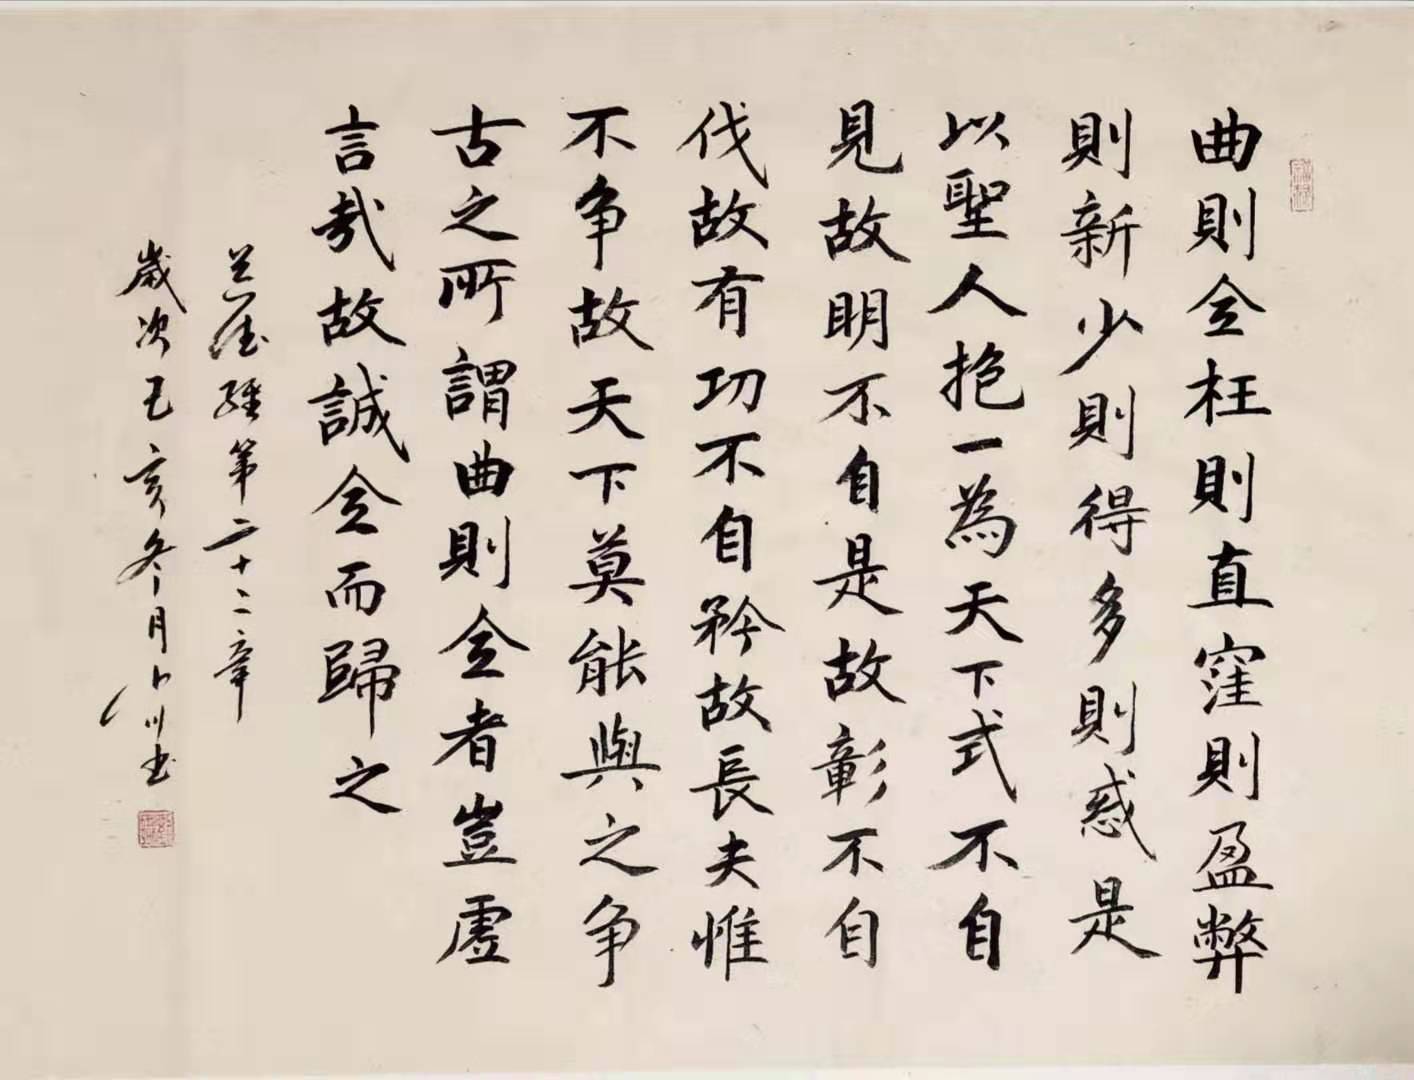 曲則全枉則直窪則盈弊
則新少則得多則惑是
以聖人抱一為天下式不自
見故明不自是故彰不自
伐故有功不自矜故長夫惟
不争故天下莫能與之争
古之所謂曲則全者豈虛
言哉故誠全而歸之
道德經第二十二章
歲次己亥冬月 川书